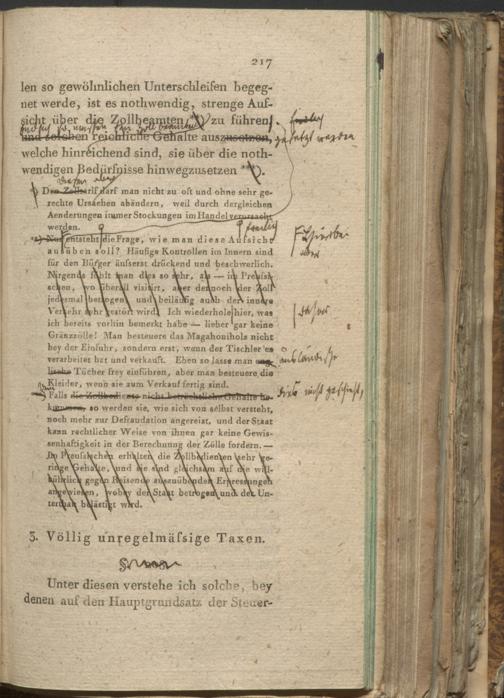 217
len so gewöhnlichen Unterschleifen begeg-
net werde, ist es nothwendig, strenge Auf-
sicht über die Zollbeamten zu führen,
und solchen reichliche Gehalte auszusetzen,
gesetzt werden
welche hinreichend sind, sie über die noth-
wendigen Bedürfnisse hinwegzusetzen **).
*) Den Zolltarif darf man nicht zu oft und ohne sehr ge-
rechte Ursachen abändern, weil durch dergleichen
Aenderungen immer Stockungen im Handel verursacht
werden.
**) Nun entsteht die Frage, wie man diese Aufsicht
ausüben soll? Häufige Kontrollen im Innern sind
für den Bürger äusserst drückend und beschwerlich.
Nirgends fühlt man dies so sehr, als — im Preussi-
schen, wo überall visitirt, aber dennoch der Zoll
jedesmal betrogen, und beiläufig auch der innere
Verkehr sehr gestört wird. Ich wiederhole hier, was
ich bereits vorhin bemerkt habe — lieber gar keine
Gränzzölle! Man besteuere das Magahoniholz nicht
bey der Einfuhr, sondern erst, wenn der Tischler es
verarbeitet hat und verkauft. Eben so lasse man eng-
ausländische
lische Tücher frey einführen, aber man besteuere die
Kleider, wenn sie zum Verkauf fertig sind.
Falls die Zollbediente nicht beträchtliche Gehalte be-
dieß nicht geschieht,
kommen, so werden sie, wie sich von selbst versteht,
noch mehr zur Defraudation angereizt, und der Staat
kann rechtlicher Weise von ihnen gar keine Gewis-
senhaftigkeit in der Berechnung der Zölle fordern. —
Im Preussischen erhalten die Zollbedienten sehr ge-
ringe Gehalte, und sie sind gleichsam auf die will-
kührlich gegen Reisende auszuübenden Erpressungen
angewiesen, wobey der Staat betrogen und der Un-
terthan belästigt wird.
3. Völlig unregelmäfsige Taxen.
Unter diesen verstehe ich solche, bey
denen auf den Hauptgrundsatz der Steuer-